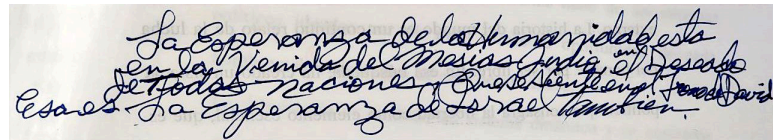 La Esperanza de la Humanidad esta
en la Venida del Mesias Judio, el Deseado
de Todas Naciones, Que se siente en el Trono de David
Esa es La Esperanza de Israel tambien.